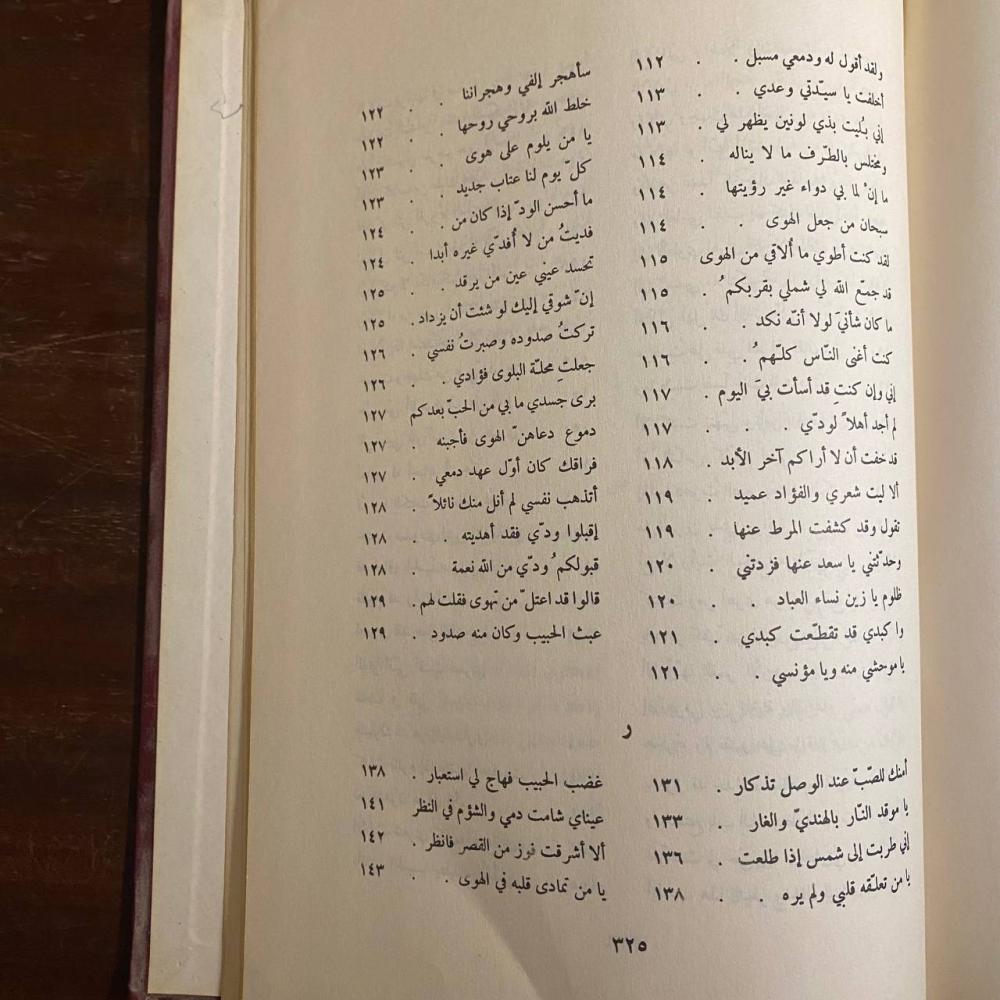 ولقد أقول له ودمعي مسبل . . ١١٢
أخلفت يا سيّدتي وعدي . . ١١٣
إني بُليت بذي لونين يظهر لي . ١١٣
ومختلس بالطّرف ما لا يناله . ١١٤
ما إنْ لما بي دواء غير رؤيتها . ١١٤
سبحان من جعل الهوى . . ١١٤
لقد كنت أطوي ما أُلاقي من الهوى ١١٥
قد جمّع الله لي شملي بقربكمُ . ١١٥
ما كان شأنيَ لولا أنّه نكد . . ١١٦
كنت أغنى النّاس كلّهمُ . . ١١٦
إني وإن كنتِ قد أسأت بيَ اليوم . ١١٧
لم أجد أهلاً لودّي . . . ١١٧
قد خفت أن لا أراكم آخر الأبد . ١١٨
ألا ليت شعري والفؤاد عميد . ١١٩
نقول وقد كشفت المرط عنها . ١١٩
وحدّثتني يا سعد عنها فزدتني . ١٢٠
ظلوم يا زين نساء العباد . . ١٢٠
وا كبدي قد تقطّعت كبدي . ١٢١
يا موحشي منه ويا مؤنسي . . ١٢١
سأهجر إلفي وهجراننا . . ١٢٢
خلط الله بروحي روحها . . ١٢٢
يا من يلوم على هوى . . ١٢٣
كلّ يوم لنا عتاب جديد . . ١٢٣
ما أحسن الودّ إذا كان من . . ١٢٤
فديتُ من لا أُفدّي غيره أبدا . ١٢٤
تحسد عيني عين من يرقد . . ١٢٥
إنّ شوقي إليك لو شئت أن يزداد . ١٢٥
تركتُ صدوده وصبرتُ نفسي . ١٢٦
جعلتِ محلّة البلوى فؤادي . . ١٢٦
برى جسدي ما بي من الحبّ بعدكم ١٢٧
دموع دعاهنّ الهوى فأجبنه . ١٢٧
فراقك كان أوّل عهد دمعي . ١٢٧
أتذهب نفسي لم أنل منك نائلاً . ١٢٨
إقبلوا ودّي فقد أهديته . . ١٢٨
قبولكمُ ودّي من الله نعمة . ١٢٨
قالوا قد اعتلّ من تهوى فقلت لهم . ١٢٩
عبث الحبيب وكان منه صدود . ١٢٩
ر
أمنك للصّبّ عند الوصل تذكار . ١٣١
يا موقد النّار بالهنديّ والغار . ١٣٣
إني طربت إلى شمس إذا طلعت . ١٣٦
يا من تعلّقه قلبي ولم يره . . ١٣٨
غضب الحبيب فهاج لي استعبار . ١٣٨
عيناي شامت دمي والشؤم في النظر ١٤١
ألا أشرقت فوز من القصر فانظر . ١٤٢
يا من تمادى قلبه في الهوى . . ١٤٣
٣٢٥